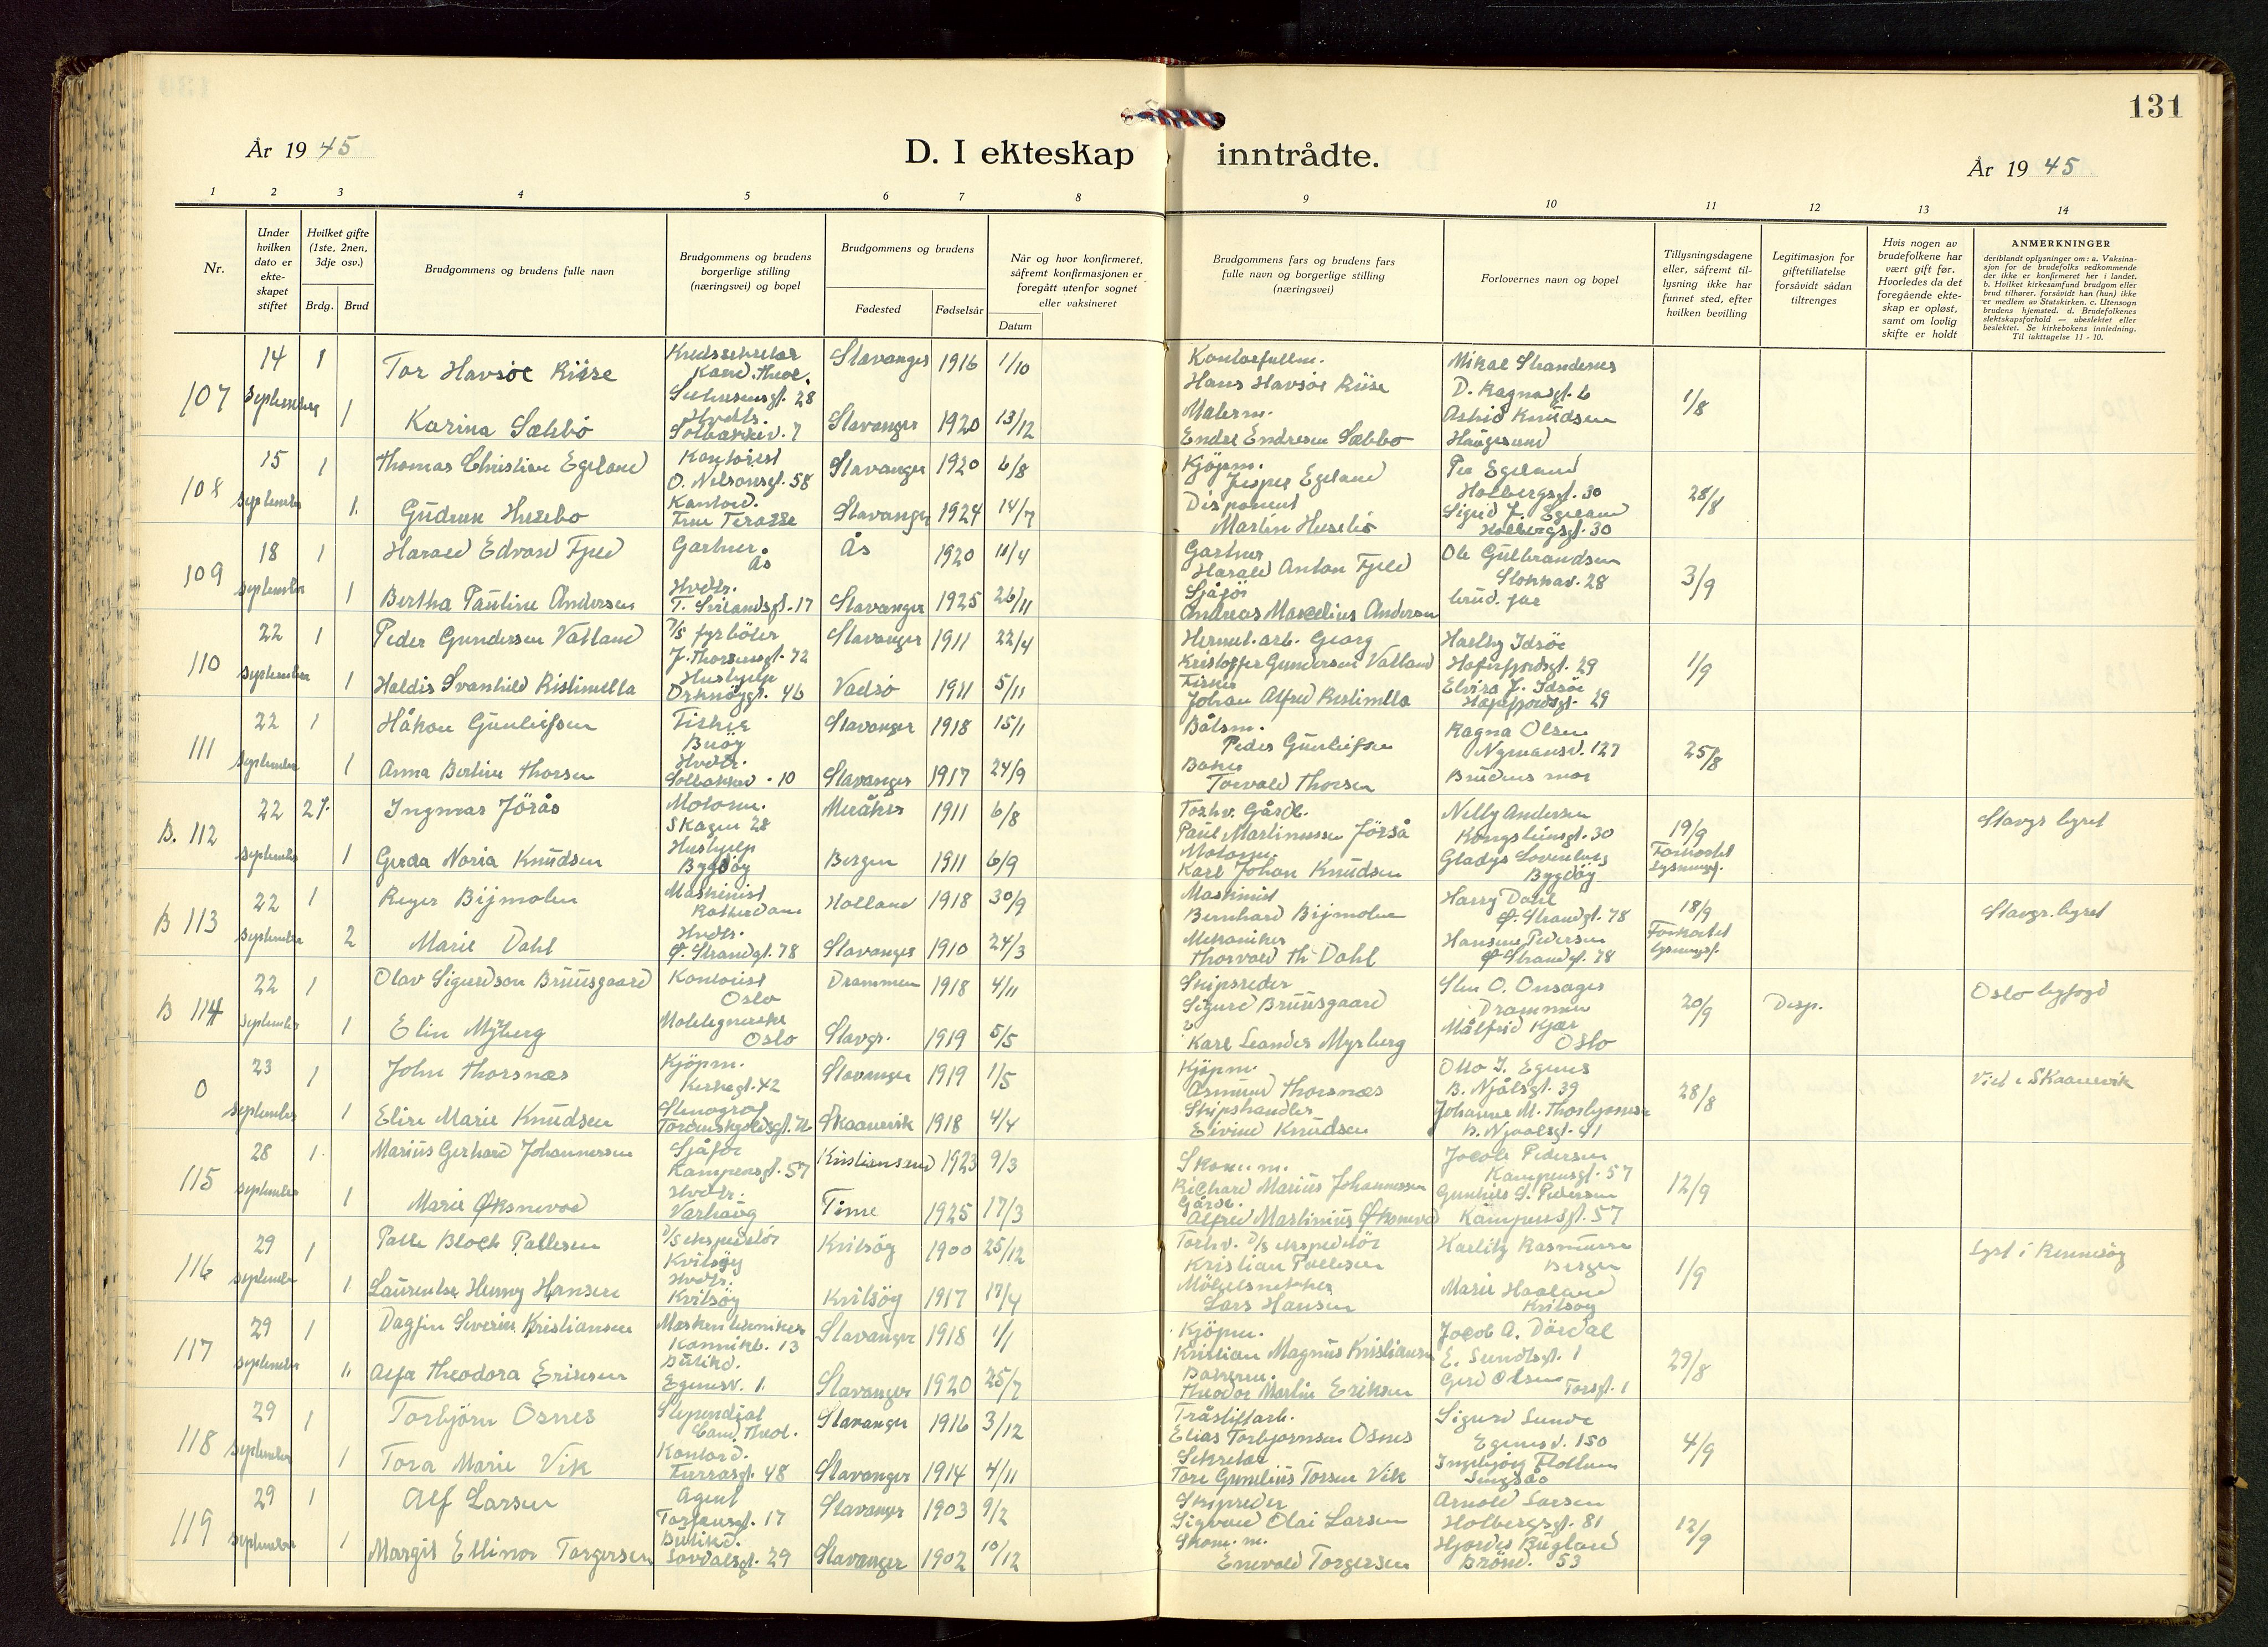 131
År 1945
D. I ekteskap inntrådte.
År 1945
1 2 3 4 5 6 7 8 9 10 11 12 13 14
Nr.
Under hvilken dato er ekteskapet stiftet
Hvilket gifte (1ste, 2nen, 3dje osv.)
Brdg. Brud
Brudgommens og brudens fulle navn
Brudgommens og brudens borgerlige stilling (næringsvei) og bopel
Brudgommens og brudens
Fødested
Fødselsår
Når og hvor konfirmeret, såfremt konfirmasjonen er foregått utenfor sognet eller vaksineret
Datum
Brudgommens fars og brudens fars fulle navn og borgerlige stilling (næringsvei)
Forlovernes navn og bopel
Tillysningsdagene eller, såfremt tillysning ikke har funnet sted, efter hvilken bevilling
Legitimasjon for giftetillatelse forsåvidt sådan tiltrenges
Hvis nogen av brudefolkene har vært gift før. Hvorledes da det foregående ekteskap er opløst, samt om lovlig skifte er holdt
ANMERKNINGER
deriblandt oplysninger om: a. Vaksinasjon for de brudefolks vedkommende der ikke er konfirmeret her i landet. b. Hvilket kirkesamfund brudgom eller brud tilhører, forsåvidt han (hun) ikke er medlem av Statskirken. c. Utensogn brudens hjemsted. d. Brudefolkenes slektskapsforhold — ubeslektet eller beslektet. Se kirkebokens innledning. Til iakttagelse 11 - 10.
107 14 September 1 Tor Havsøe Riise Kredssekretær Kand. theol. 28 Stavanger 1916 1/10 Kontorfullm. Hans Havsøe Riise Mikal Strandenes D. Ragnasgt. 6 1/8
1 Karina Sæbbø Hvdtr. Solbakkev. 7 Stavanger 1920 13/12 Malerm. Endre Endresen Sæbbø Astrid Knudsen Haugesund
108 15 September 1 Thomas Christian Egeland Kontorist O. Nilsonsgt. 58 Stavanger 1920 6/8 Kjöpm. Jesper Egeland Per Egeland Holbergsgt. 30 28/8
1. Gudrun Husebø Kontord. Frue Terasse Stavanger 1924 14/7 Disponent Martin Husebø Sigrid J. Egeland Holbergsgt. 30
109 18 September 1 Harald Edvard Fjeld Gartner. Ås Ås 1920 11/4 Gartner Harald Anton Fjeld Ole Gulbrandsen Stokkav. 28 3/9
1 Bertha Pauline Andersen Hvdtr. T. Smlandsgt. 17 Stavanger 1925 26/11 Sjåför Andreas Marcelius Andersen brud. far
110 22 September 1 Peder Gundersen Vatland D/S fyrböter J. Thorsensgt. 72 Stavanger 1911 22/4 Hermet. arb. Georg Kristoffer Gundersen Vatland Harthy Idsöe Hafrsfjordsgt. 29 1/9
1 Haldis Svanhild Ristimella Hushjelp Orknöygt. 46 Vadsö 1911 5/11 Fisker Johan Alfred Ristimella Elvira J. Idsöe Hafrsfjordsgt. 29
111 22 September 1 Håkon Gunleifsen Fisker Buöy Stavanger 1918 15/1 Båtsm. Peder Gunleifsen Ragna Olsen Nymansv. 127 25/8
1 Anna Bertine Thorsen Hvdtr. Solbakked. 10 Stavanger 1917 24/9 Baker Torvald Thorsen Brudens mor
B. 112 22 September 2 f. Ingmar Jörås Motorm. Skagen 28 Meråker 1911 6/8 Forhv. Gårdb. Paul Martinussen Jörså Nelly Andersen Kongsteinsgt. 30 19/9 Forkortet lysningsf. Stavgr byret
1 Gerda Noria Knudsen Hushjelp Bygdöy Bergen 1911 6/9 Motorm. Karl Johan Knudsen Gladys Bygdöy
B 113 22 September 1 Reyer Bijmolen Maskinist Rotterdam Holland 1918 30/9 Maskinist Bernhard Bijmolen Harry Dahl Ø. Strandgt. 78 18/9 Forkortet lysningsf. Stavgr. byret
2 Marie Dahl Hvdtr. Ø. Strandgt. 78 Stavanger 1910 24/3 Mekaniker Thorvald Th. Dahl Hansine Pedersen Ø Strandgt. 78
B 114 22 September 1 Olav Sigurdson Bruusgaard Kontorist Oslo Drammen 1918 4/11 Skipsreder Sigurd Bruusgaard Sten O. Onsager Drammen 20/9 Disp. Oslo byfogd
1 Elin Myrberg Motetegnerske Oslo Stavgr. 1919 5/5 Karl Leander Myrberg Målfrid Kjær Oslo
0 23 September 1 John Thorsnæs Kjöpm. Kirkegt. 42 Stavanger 1919 1/5 Kjöpm. Asmund Thorsnæs Otto J. Egenes B. Njålsgt. 39 28/8 Viet i Skaanevik
1 Elise Marie Knudsen Stenograf Tordenskjoldsgt. 26 Skaanevik 1918 4/4 Skipshandler Eivind Knudsen Johanne M. Thorbjornsen B. Njaalsgt. 41
115 28 September 1. Marius Gerhard Johannessen Sjåför Kampensgt. 57 Kristiansand 1923 9/3 Skom. m. Richard Marius Johannessen Jacob Pedersen Kampensgt. 57 12/9
1 Marie Øksnevad Hvdtr. Varhaug Time 1925 17/3 Gårdb. Alfred Martinius Øksnevad Gunhild S. Pedersen Kampensgt. 57
116 29 September 1 Palle Bloch Pallesen D/S ekspeditör Kvitsöy Kvitsöy 1900 25/12 Forhv. D/S ekspeditör Kristian Pallesen Harlitz Rasmussen Bergen 1/9 Lyst i Rennesöy
1 Laurentse Henny Hansen Hvdtr. Kvitsöy Kvitsöy 1917 17/4 Möbelsnekker Lars Hansen Marie Haaland Kvitsöy
117 29 September 1 Dagfin Severin Kristiansen Maskintekniker Kannikb. 13 Stavanger 1918 1/1 Kjöpm. Kristian Magnus Kristiansen Jacob A. Dördal E. Sundtsgt. 1 29/8
1. Alfa Theodora Eriksen Butikd. Egenesv. 1. Stavanger 1920 25/7 Bakerm. Theodor Martin Eriksen Gerd Olsen Torsgt. 1
118 29 September 1 Torbjörn Osnes Stipendiat Cand. theol. Stavanger 1916 3/12 Tråstiftarb. Elias Torbjornsen Osnes Sigurd Sunde Egenesv. 150 4/9
1 Tora Marie Vik Kontord. Furrasgt. 48 Stavanger 1914 4/11 Sekretær Tore Gumelius Torsen Vik Ingebjörg Flottum Singsås
119 29 September 1 Alf Larsen Agent Torfæusgt. 17 Stavanger 1903 9/2 Skipreder Sigvard Olai Larsen Arnold Larsen Holbergsgt. 81 12/9
1 Margit Ellinor Torgersen Butikd. Lovdalsgt. 29 Stavanger 1902 10/12 Skom. m. Enevald Torgersen Hjordis Bugland Brönd. 53